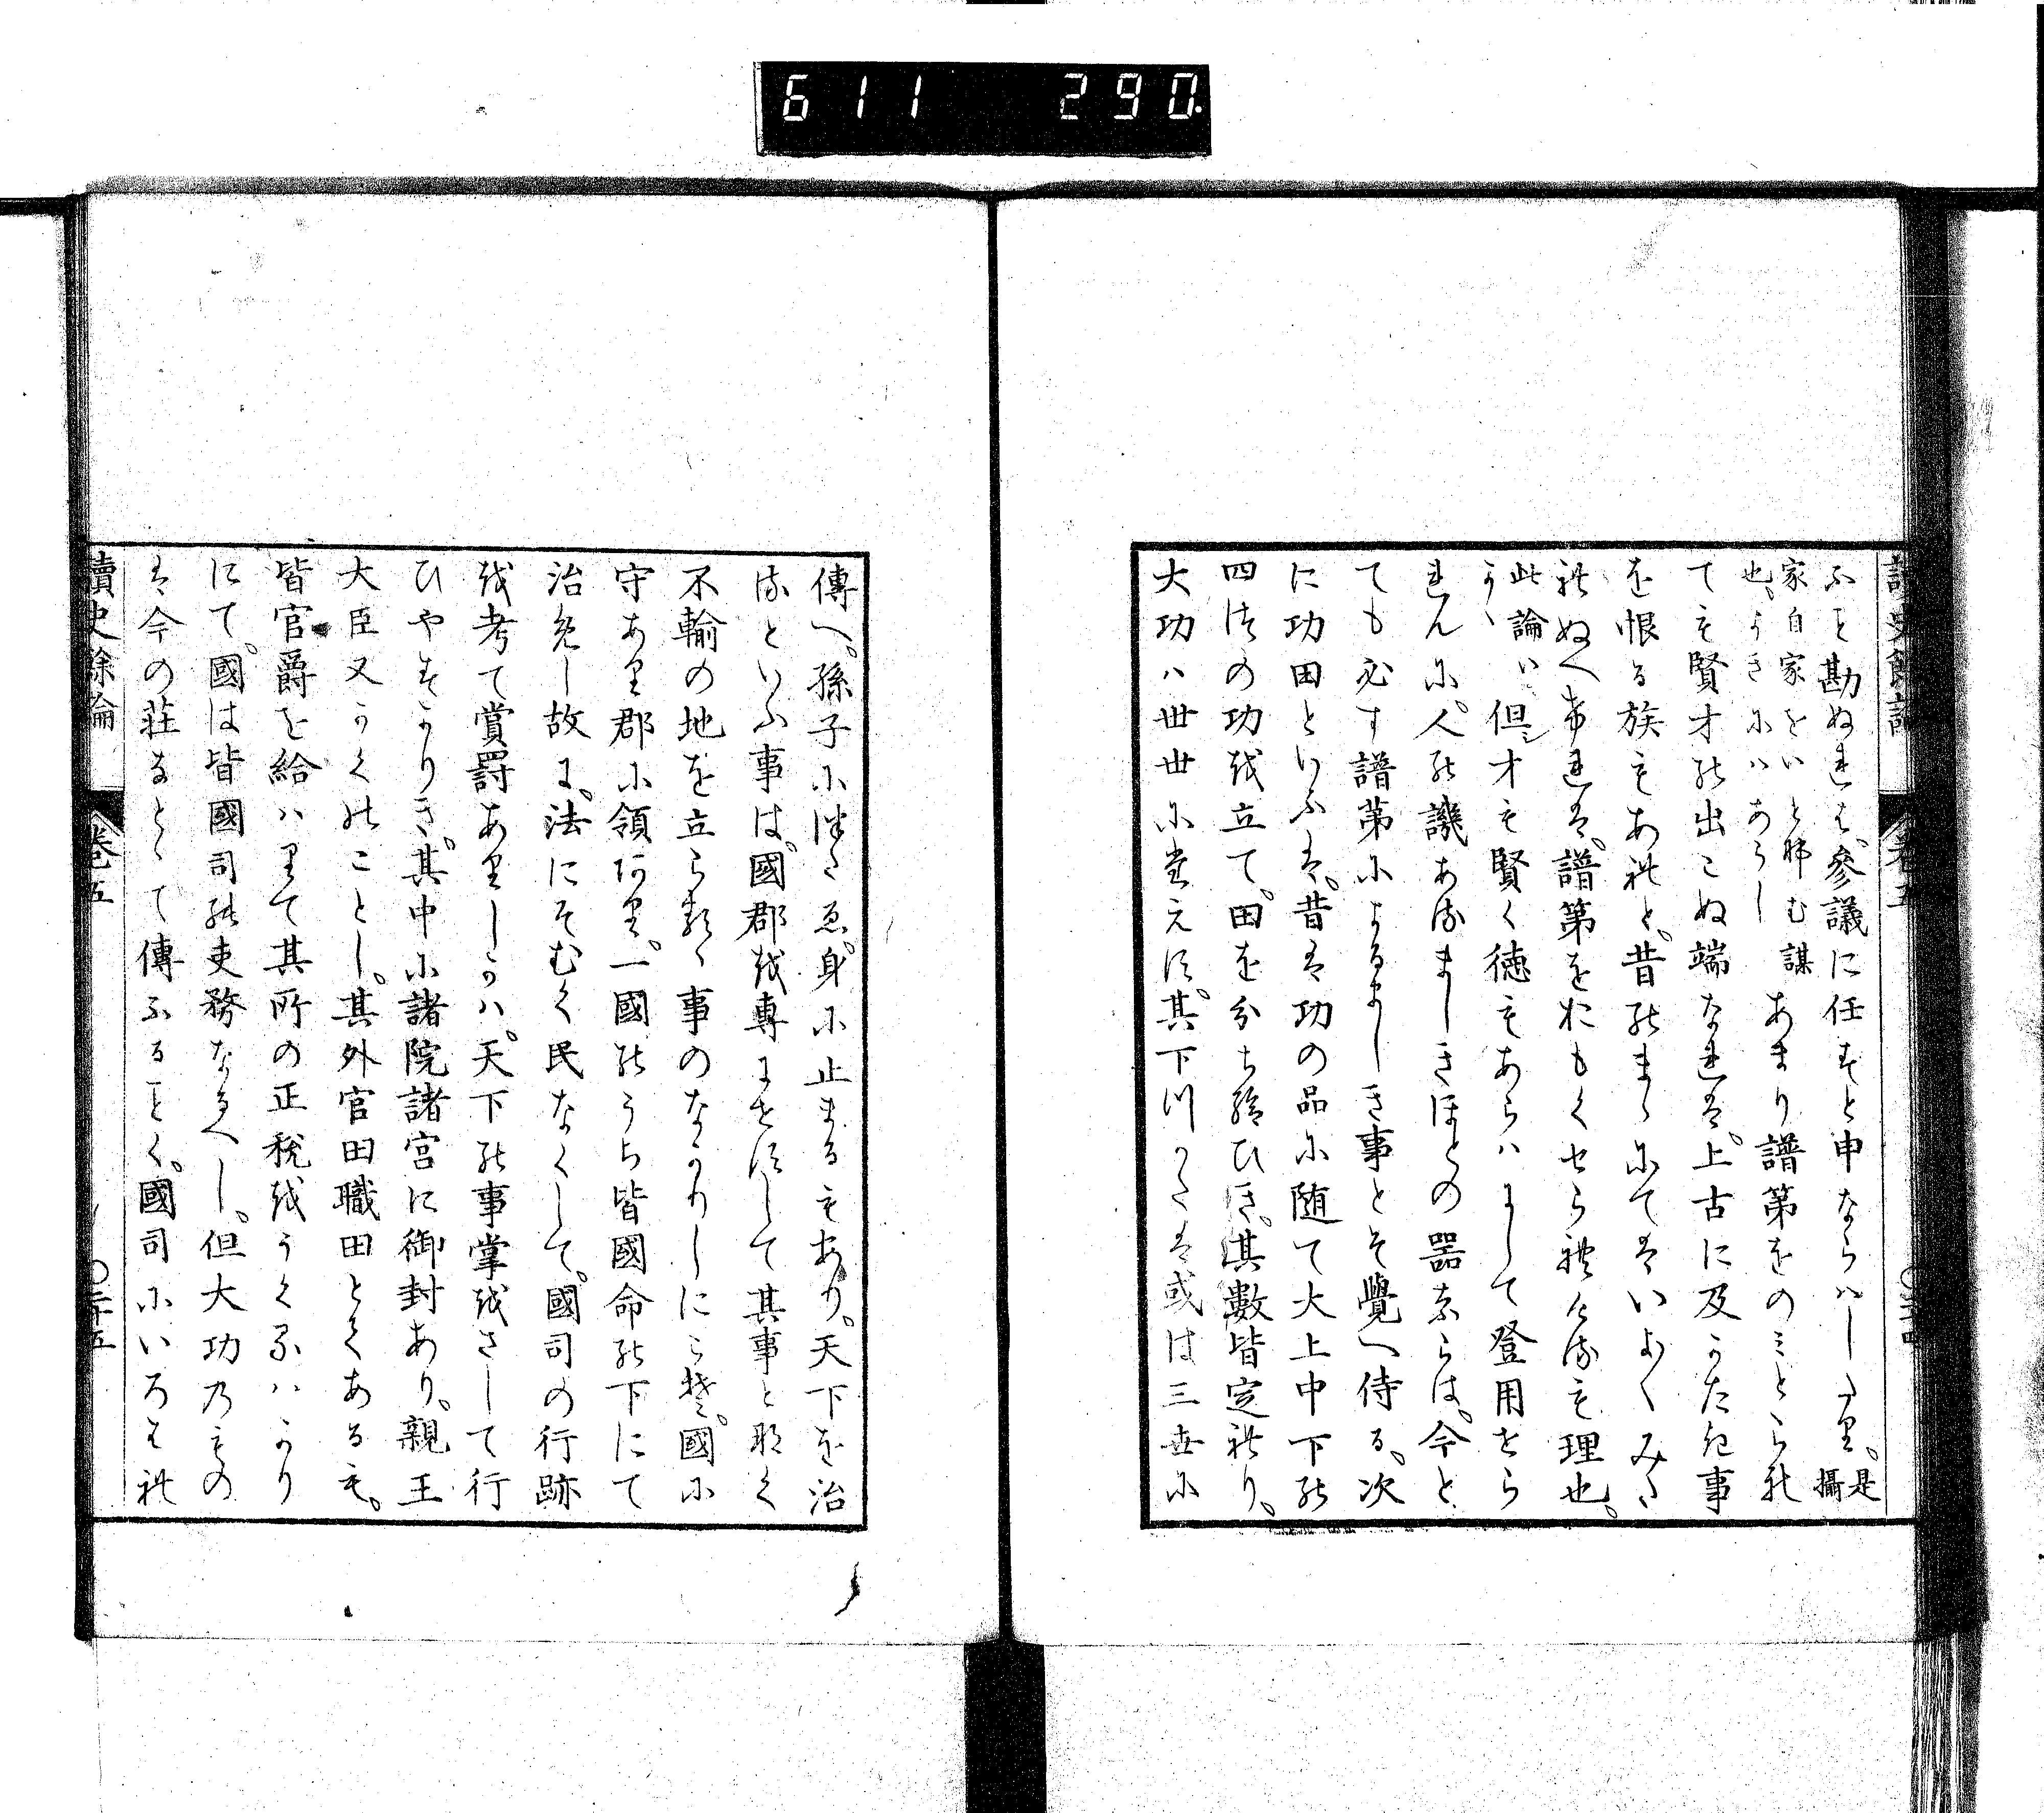 611 290.
讀史餘論 卷五 〇二十四
ふを勘ぬれは、參議に任すと申ならハしたり。是攝
家自家をいと昨む謀也、よきにハあらし あまり譜第をのミとられ
ても賢才の出こぬ端なれは、上古に及かたき事
を恨る族もあれと、昔のまゝにてはいよ〱みた
れぬへけれは、譜第をおもくせられけるも理也。
此論ハ、但シ才も賢く徳もあらハにして登用せら
れんに、人の譏あるましきほとの器ならは、今と
ても必す譜第によるましき事とそ覺へ侍る、次
に功田といふは、昔は功の品に随て大上中下の
四つの功を立て、田を分ち給ひき、其數皆定れり。
大功ハ世世に堂えす、其下つかたは或は三世に
傳へ、孫子につたゑ、身に止まるもあり。天下を治
るといふ事は、國郡を專にせすして其事と那く
不輸の地を立らるゝ事のなかりしにこそ。國に
守あり郡に領あり、一國のうち皆國命の下にて
治免し故に、法にそむく民なくして、國司の行跡
を考て賞罰ありしかハ、天下の事掌をさして行
ひやすかりき。其中に諸院諸宮に御封あり、親王
大臣又かくのことし。其外官田職田とてあるも、
皆官爵を給ハりて其所の正税をうくるハかり
にて、國は皆國司の吏務なるへし。但大功乃もの
は今の莊なとゝて傳ふることく、國司にいろはれ
讀史餘論 卷五 〇二十五